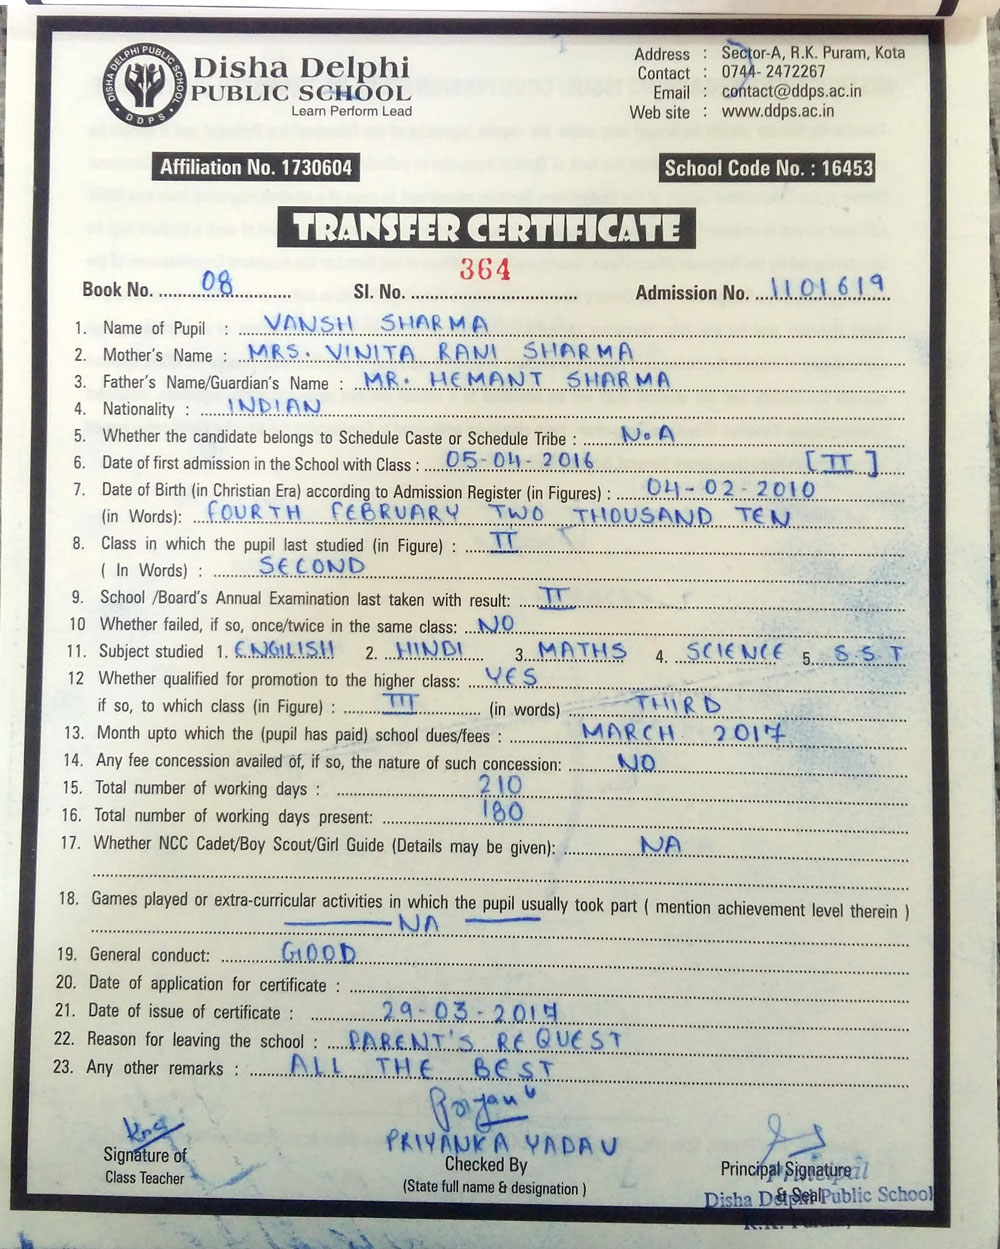 DISHA DELPHI PUBLIC SCHOOL
DDPS
Disha Delphi
PUBLIC SCHOOL
Learn Perform Lead
Address : Sector-A, R.K. Puram, Kota
Contact : 0744- 2472267
Email : contact@ddps.ac.in
Web site : www.ddps.ac.in
Affiliation No. 1730604 School Code No. : 16453
TRANSFER CERTIFICATE
Book No. 08 Sl. No. 364 Admission No. 1101619
1. Name of Pupil : VANSH SHARMA
2. Mother's Name : MRS. VINITA RANI SHARMA
3. Father's Name/Guardian's Name : MR. HEMANT SHARMA
4. Nationality : INDIAN
5. Whether the candidate belongs to Schedule Caste or Schedule Tribe : N.A
6. Date of first admission in the School with Class : 05-04-2016 [II]
7. Date of Birth (in Christian Era) according to Admission Register (in Figures) : 04-02-2010
(in Words): FOURTH FEBRUARY TWO THOUSAND TEN
8. Class in which the pupil last studied (in Figure) : II
( In Words) : SECOND
9. School /Board's Annual Examination last taken with result: II
10 Whether failed, if so, once/twice in the same class: NO
11. Subject studied 1. ENGILISH 2. HINDI 3. MATHS 4. SCIENCE 5. S.S.T
12 Whether qualified for promotion to the higher class: YES
if so, to which class (in Figure) : III (in words) THIRD
13. Month upto which the (pupil has paid) school dues/fees : MARCH 2017
14. Any fee concession availed of, if so, the nature of such concession: NO
15. Total number of working days : 210
16. Total number of working days present: 180
17. Whether NCC Cadet/Boy Scout/Girl Guide (Details may be given): NA
18. Games played or extra-curricular activities in which the pupil usually took part ( mention achievement level therein )
NA
19. General conduct: GOOD
20. Date of application for certificate :
21. Date of issue of certificate : 29-03-2017
22. Reason for leaving the school : PARENT'S REQUEST
23. Any other remarks : ALL THE BEST
PRIYANKA YADAV
Signature of
Class Teacher
Checked By
(State full name & designation )
Principal Signature
& Seal
Principal
Disha Delphi Public School